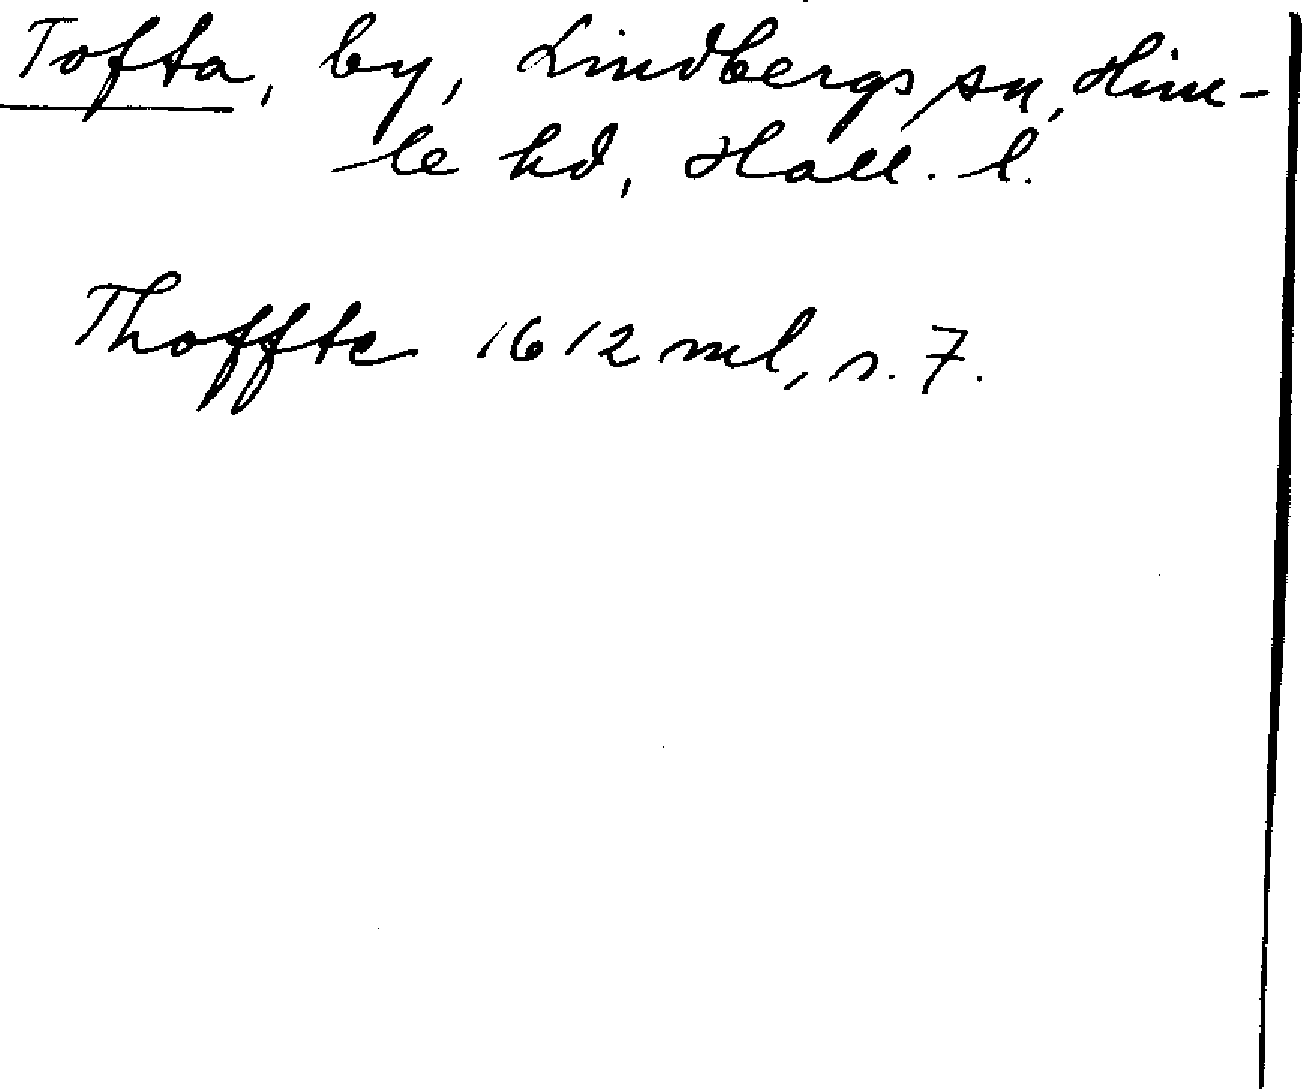 Tofta, by, Lindbergs sn, Him-
le hd, Hall. l.
Thoffte 1612 ml, s. 7.